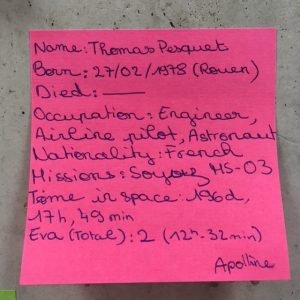 Name: Thomas Pesquet
Born: 27/02/1978 (Rouen)
Died: ——
Occupation: Engineer,
Airline pilot, Astronaut
Nationality: French
Missions: Soyouz MS-03
Time in space: 196d,
17h, 49min
Eva (Total): 2 (12h-32min)
Apolline